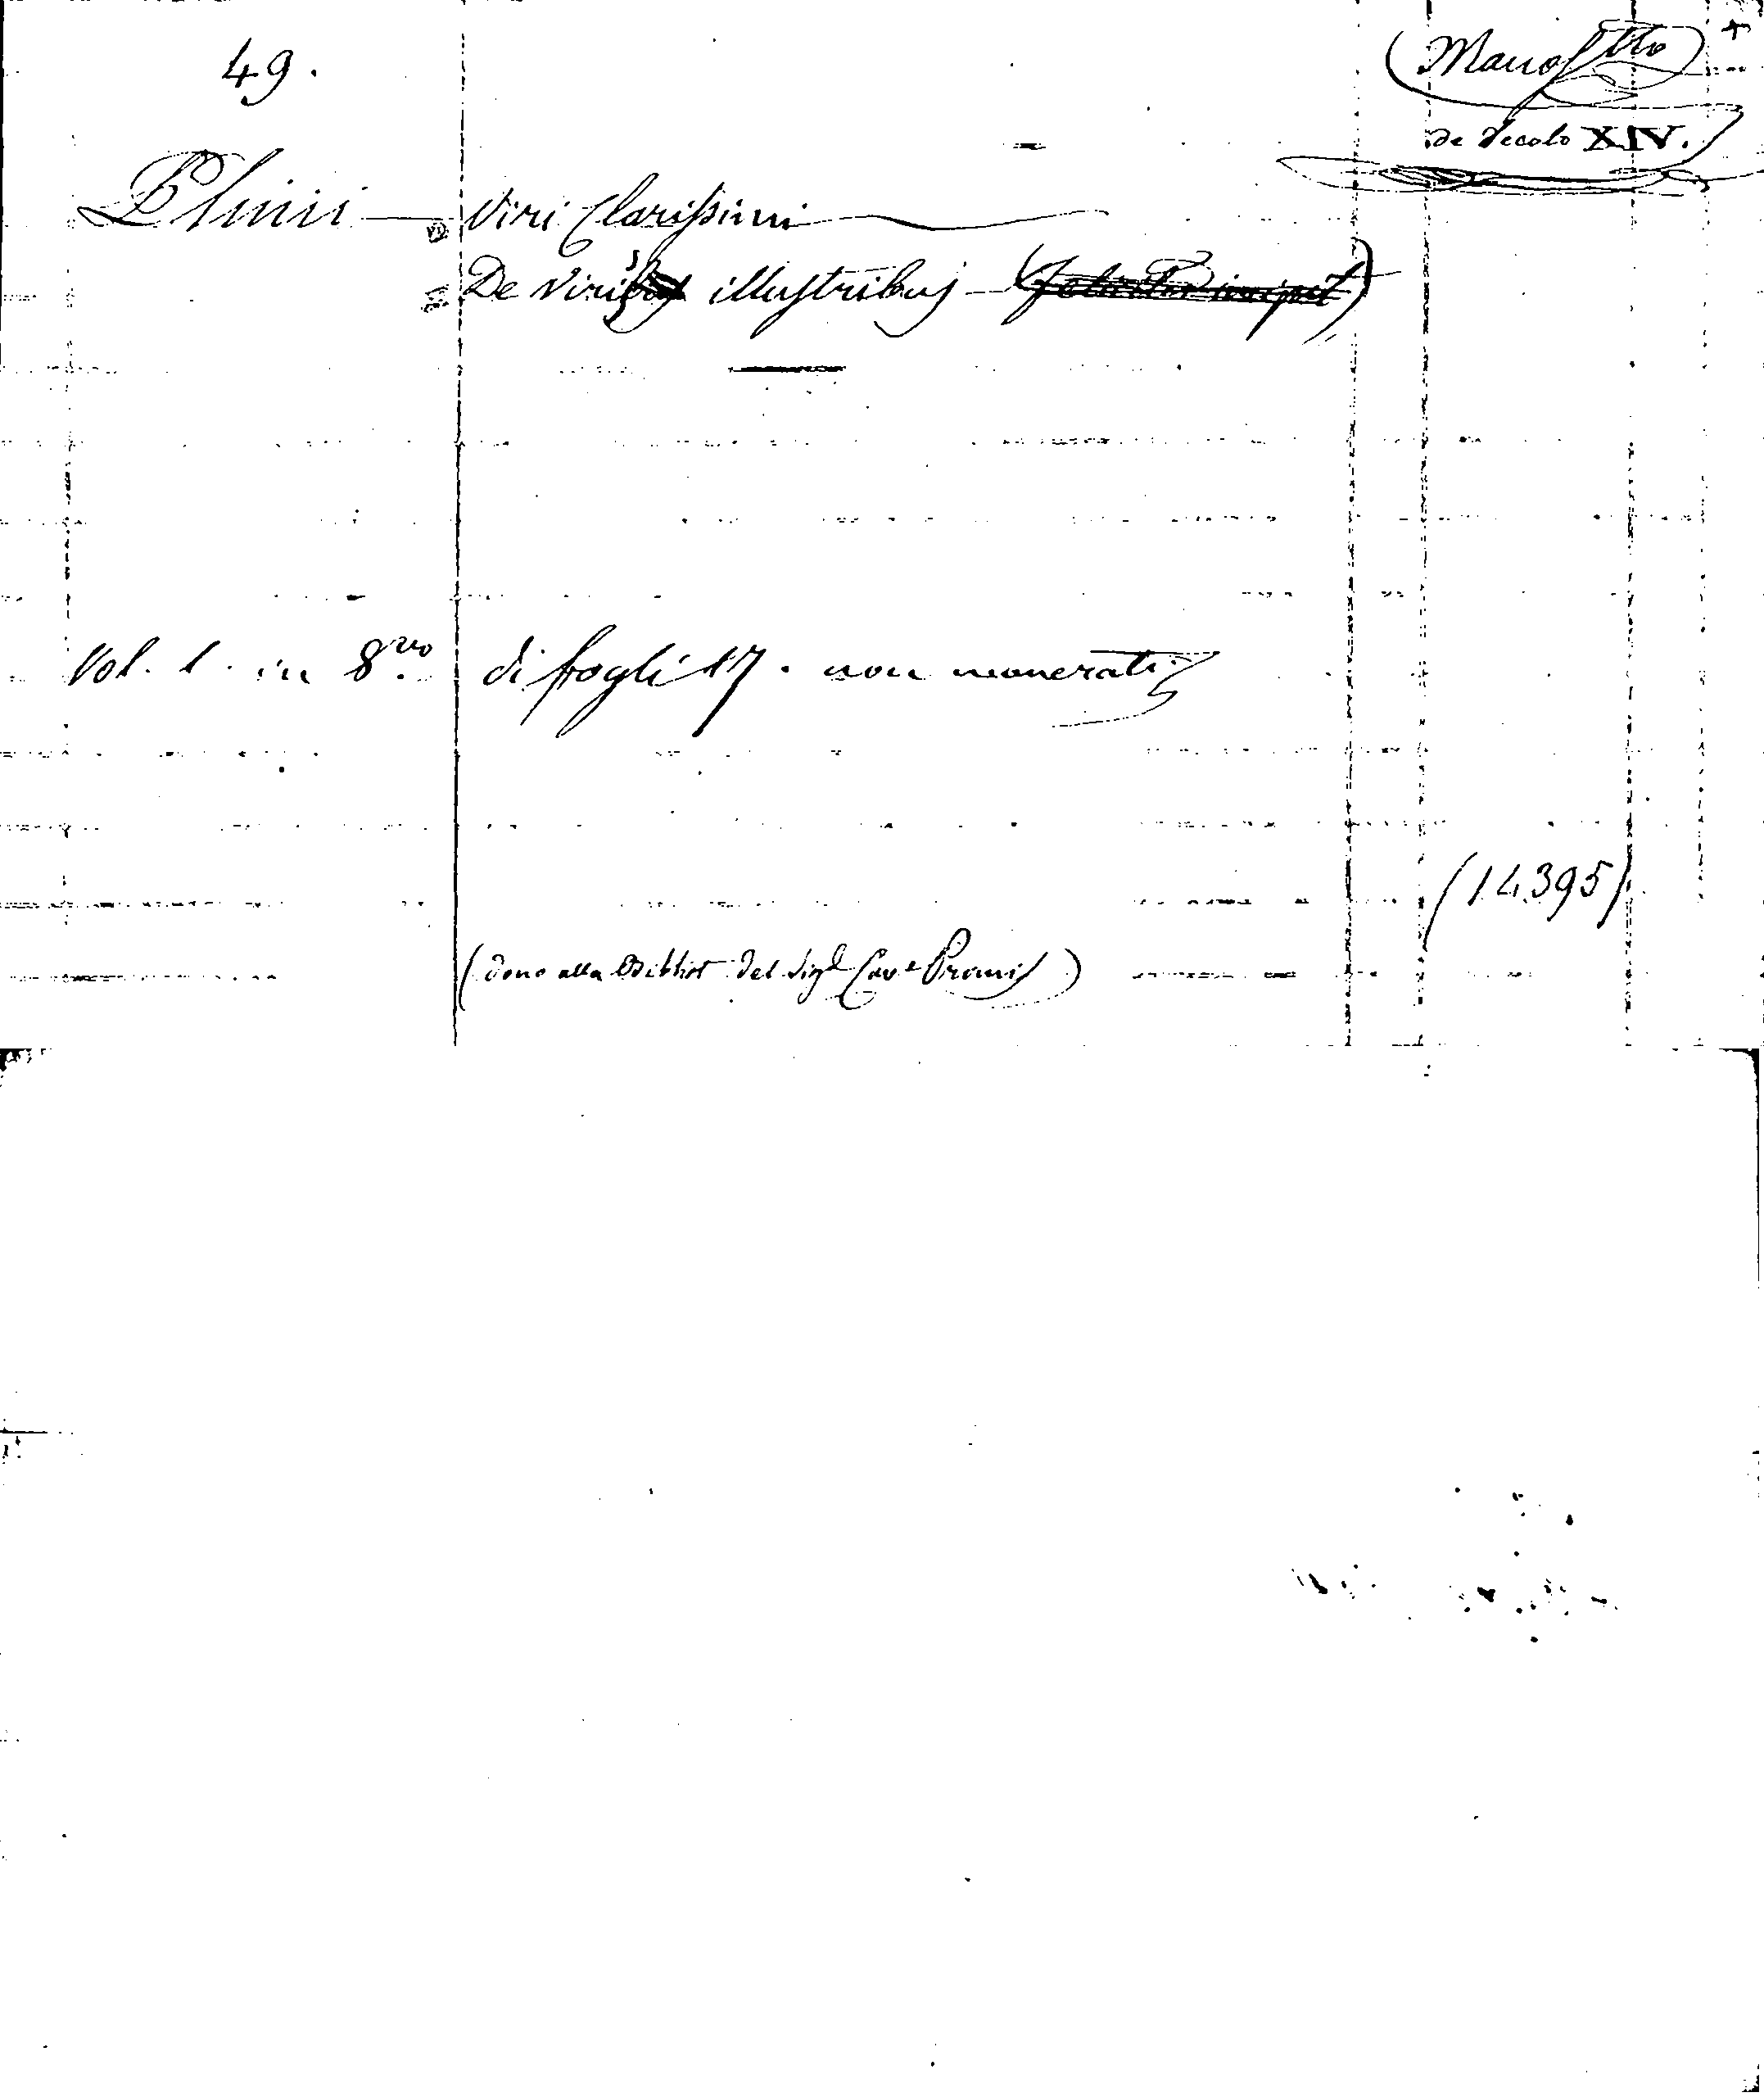 49.
(Manos.tto)
de Secolo XIV.
Plinii — Viri Clarissimi
De Viris illustribus — (feliciter incipit)
Vol. 1. in 8.vo di fogli 17. non numerati
(14395)
(dono alla Bibliot del Sigr Cave Promis)